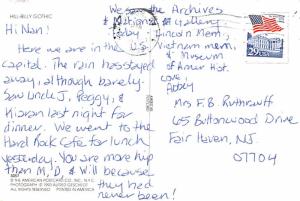 HILL-BILLY GOTHIC
Hi Nan!
Here we are in the U.S.
capital. The rain has stayed
away, although barely.
Saw Uncle J, Peggy, &
Kieran last night for
dinner. We went to the
Hard Rock Cafe for lunch
yesterday. You are more hip
than M, D, & Will because
they had
never been!
We saw the Archives
& National Gallery
today, Lincoln Mem.,
Vietnam mem.,
& Museum
of Amer. Hist.
Love,
Abbey
29 USA
Mrs. F.B. Ruthrauff
65 Buttonwood Drive
Fair Haven, NJ
07704
© THE AMERICAN POSTCARD CO., INC. N.Y.C.
PRINTED IN AMERICA